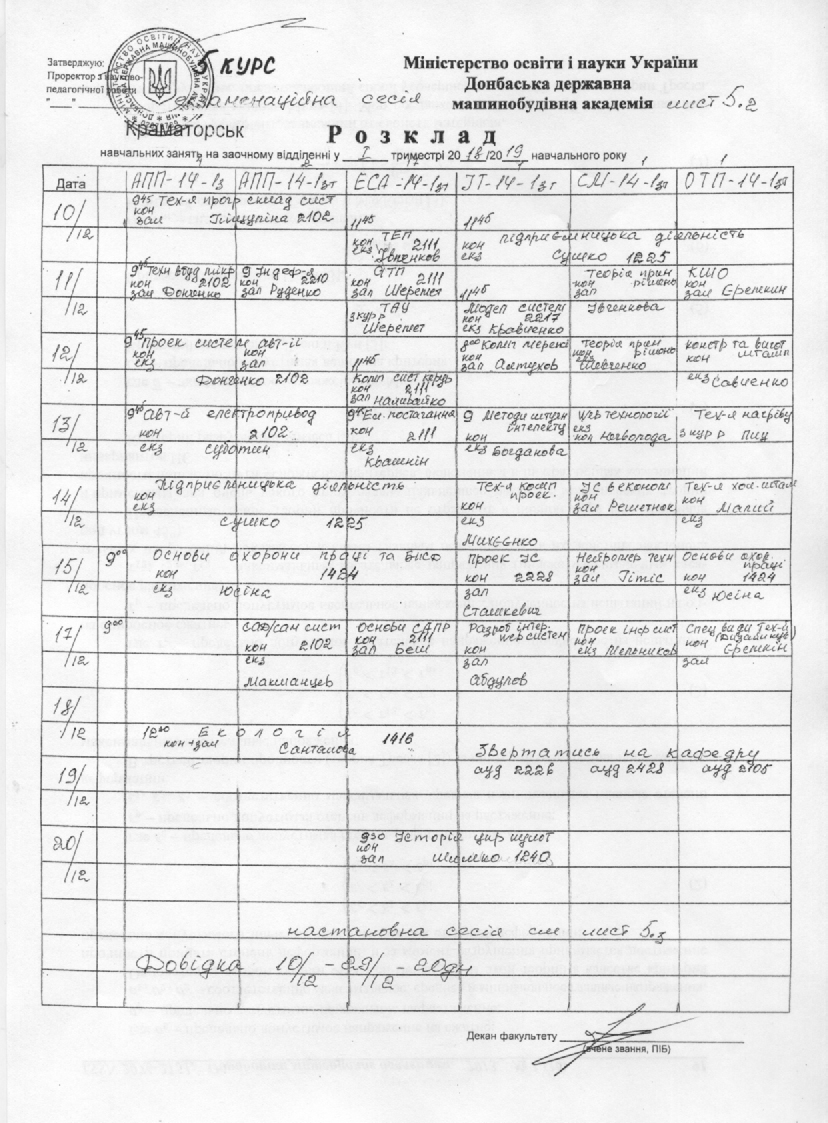 Затверджую:
Проректор з науково-
педагогічної роботи
"___" ______
5 КУРС
екзаменаційна сесія
Краматорськ
Міністерство освіти і науки України
Донбаська державна
машинобудівна академія лист 5.2
Розклад
навчальних занять на заочному відділенні у I триместрі 2018/2019 навчального року
Дата АПП-14-1з АПП-14-1зт ЕСА-14-1зт ІТ-14-1зт СМ-14-1зт ОТП-14-1зт
10/12
9 45 Тех-я прогр склад сист
кон
зал 2102
11 45 11 45
ТЕП підприємницька діяльність
кон 2111 кон
екз Івченков екз Сушко 1225
11/12
2102 9 2210 ОТП 2111 Теорія прин КШО
кон кон кон 11 45 кон рішень кон
зал Фоменко зал Руденко зал Шеремет зал зал Єремкин
ТАУ Модел систем
з кур р кон 2217
Шеремет екз Кравченко
12/12
9 45 Проек систем авт-ії 8 00 Комп мережі Теорія прин констр та вигот
кон кон 11 45 кон кон рішень кон штамп
екз зал зал Алтухов екз Шевченко
Фоменко 2102 Комп сист керув екз Савченко
кон 2111
зал Наливайко
13/12
9 45 Авт-й електропривод 9 45 Ел. постачання 9 Методи штучн Web технології Тех-я нагріву
кон 2102 кон 2111 кон інтелекту екз з кур р
екз суботин екз екз Богданова кон
Квашнін
14/12
Підприємницька діяльність Тех-я комп ІС в економ Тех-я хол. штамп
кон кон проек. кон кон Малий
екз екз зал Решетняк екз
сушко 1225
Михеєнко
15/12
9 00 Основи охорони праці та БЖД Проек ІС Основи охор.
кон 1424 кон 2228 кон праці
екз Юсіна зал зал Гітіс кон 1424
Сташкевич екз Юсіна
17/12
9 00 2102 Основи САПР Розроб інтер. Проек інф сист Спец види тех-й
кон кон 2111 web систем кон
екз зал Беш кон екз Мельников кон Єремкін
зал зал
Макшанцев Абдулов
18/12
12 00 Екологія 1416
кон+зал Санталова
Звертатись на кафедру
19/12
ауд 2226 ауд 2428 ауд 2105
20/12
9 30 Історія
кон
зал Шимко 1240
настановна сесія см лист 5.3
Довідка 10/12 - 29/12 - 20дн
Декан факультету
(вчене звання, ПІБ)